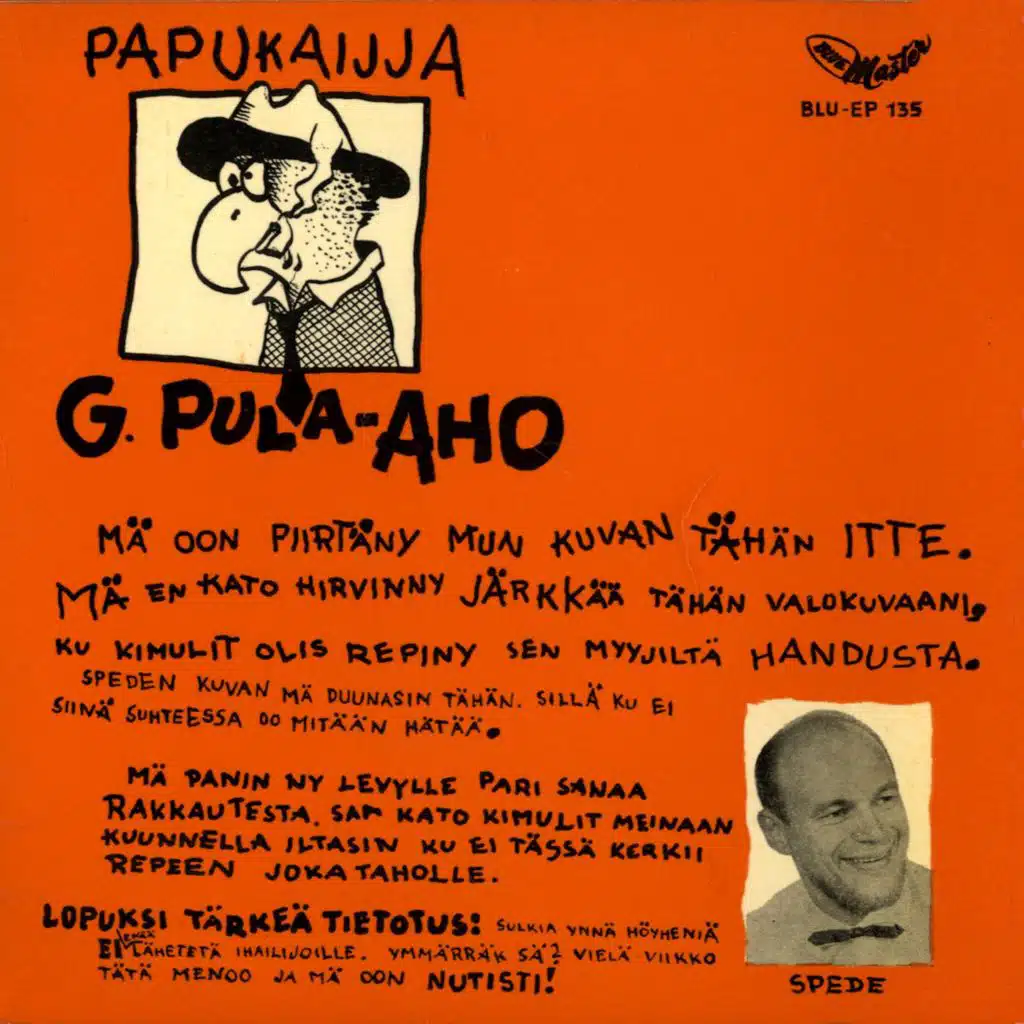 PAPUKAIJJA
BLUE Master
BLU-EP 135
G. PULA-AHO
MÄ OON PIIRTÄNY MUN KUVAN TÄHÄN ITTE.
MÄ EN KATO HIRVINNY JÄRKKÄÄ TÄHÄN VALOKUVAANI,
KU KIMULIT OLIS REPINY SEN MYYJILTÄ HANDUSTA.
SPEDEN KUVAN MÄ DUUNASIN TÄHÄN. SILLÄ KU EI
SIINÄ SUHTEESSA OO MITÄÄN HÄTÄÄ.
MÄ PANIN NY LEVYLLE PARI SANAA
RAKKAUTESTA, SAP KATO KIMULIT MEINAAN
KUUNNELLA ILTASIN KU EI TÄSSÄ KERKII
REPEEN JOKA TAHOLLE.
LOPUKSI TÄRKEÄ TIETOTUS: SULKIA YNNÄ HÖYHENIÄ
EI ENÄÄ LÄHETETÄ IHAILIJOILLE. YMMÄRRÄK SÄ? VIELÄ VIIKKO
TÄTÄ MENOO JA MÄ OON NUTISTI!
SPEDE